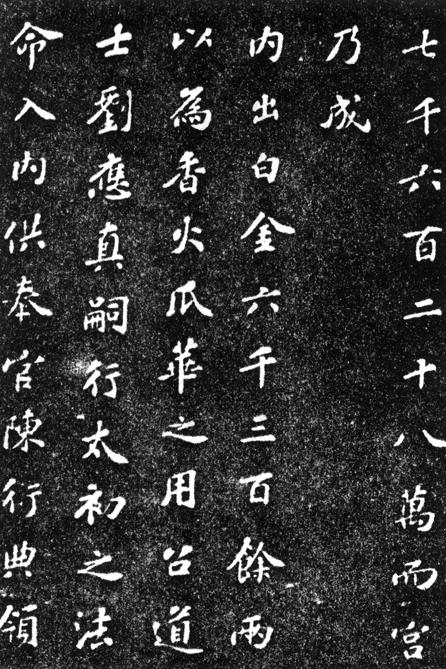 七千六百二十八萬而宮
乃成
内出白金六千三百餘兩
以為香火瓜華之用召道
士劉應真嗣行太初之法
命入内供奉官陳行典領